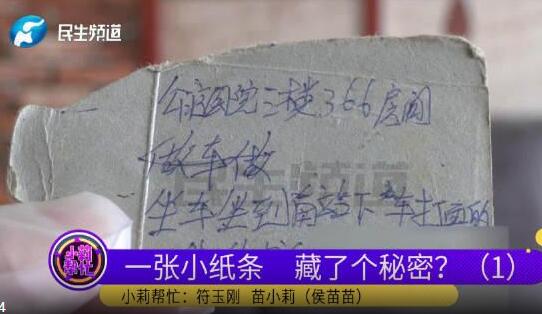 民生频道
公疗医院三楼366房间
做车做
坐车坐到南站下车打面的
民生频道
小莉帮忙
一张小纸条 藏了个秘密？（1）
小莉帮忙：符玉刚 苗小莉（侯苗苗）
4